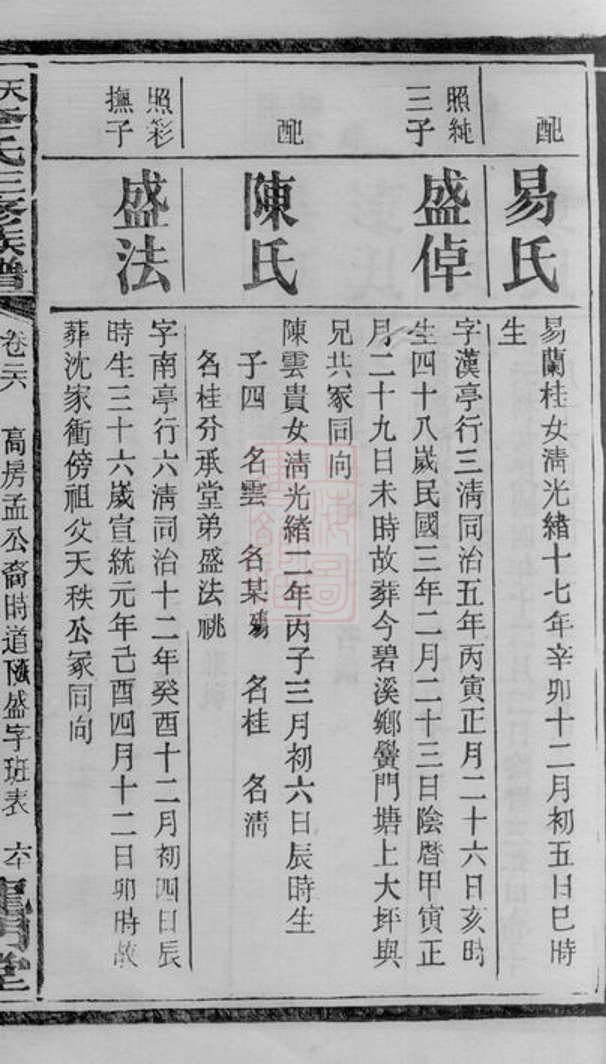 配
易氏
易蘭桂女清光緒十七年辛卯十二月初五日巳時
生
照純
三子
盛倬
字漢亭行三清同治五年丙寅正月二十六日亥時
生四十八歲民國三年二月二十三日陰曆甲寅正
月二十九日未時故葬今碧溪鄉黌門塘上大坪與
兄共冢同向
配
陳氏
陳雲貴女清光緒二年丙子三月初六日辰時生
子四 名雲 名某殤 名桂 名清
名桂分承堂弟盛法祧
照彩
撫子
盛法
字南亭行六清同治十二年癸酉十二月初四日辰
時生三十六歲宣統元年己酉四月十二日卯時故
葬沈家衝傍祖父天秩公冢同向
氏三修族譜
卷二六
高房孟公裔時道隆盛字班表
堂